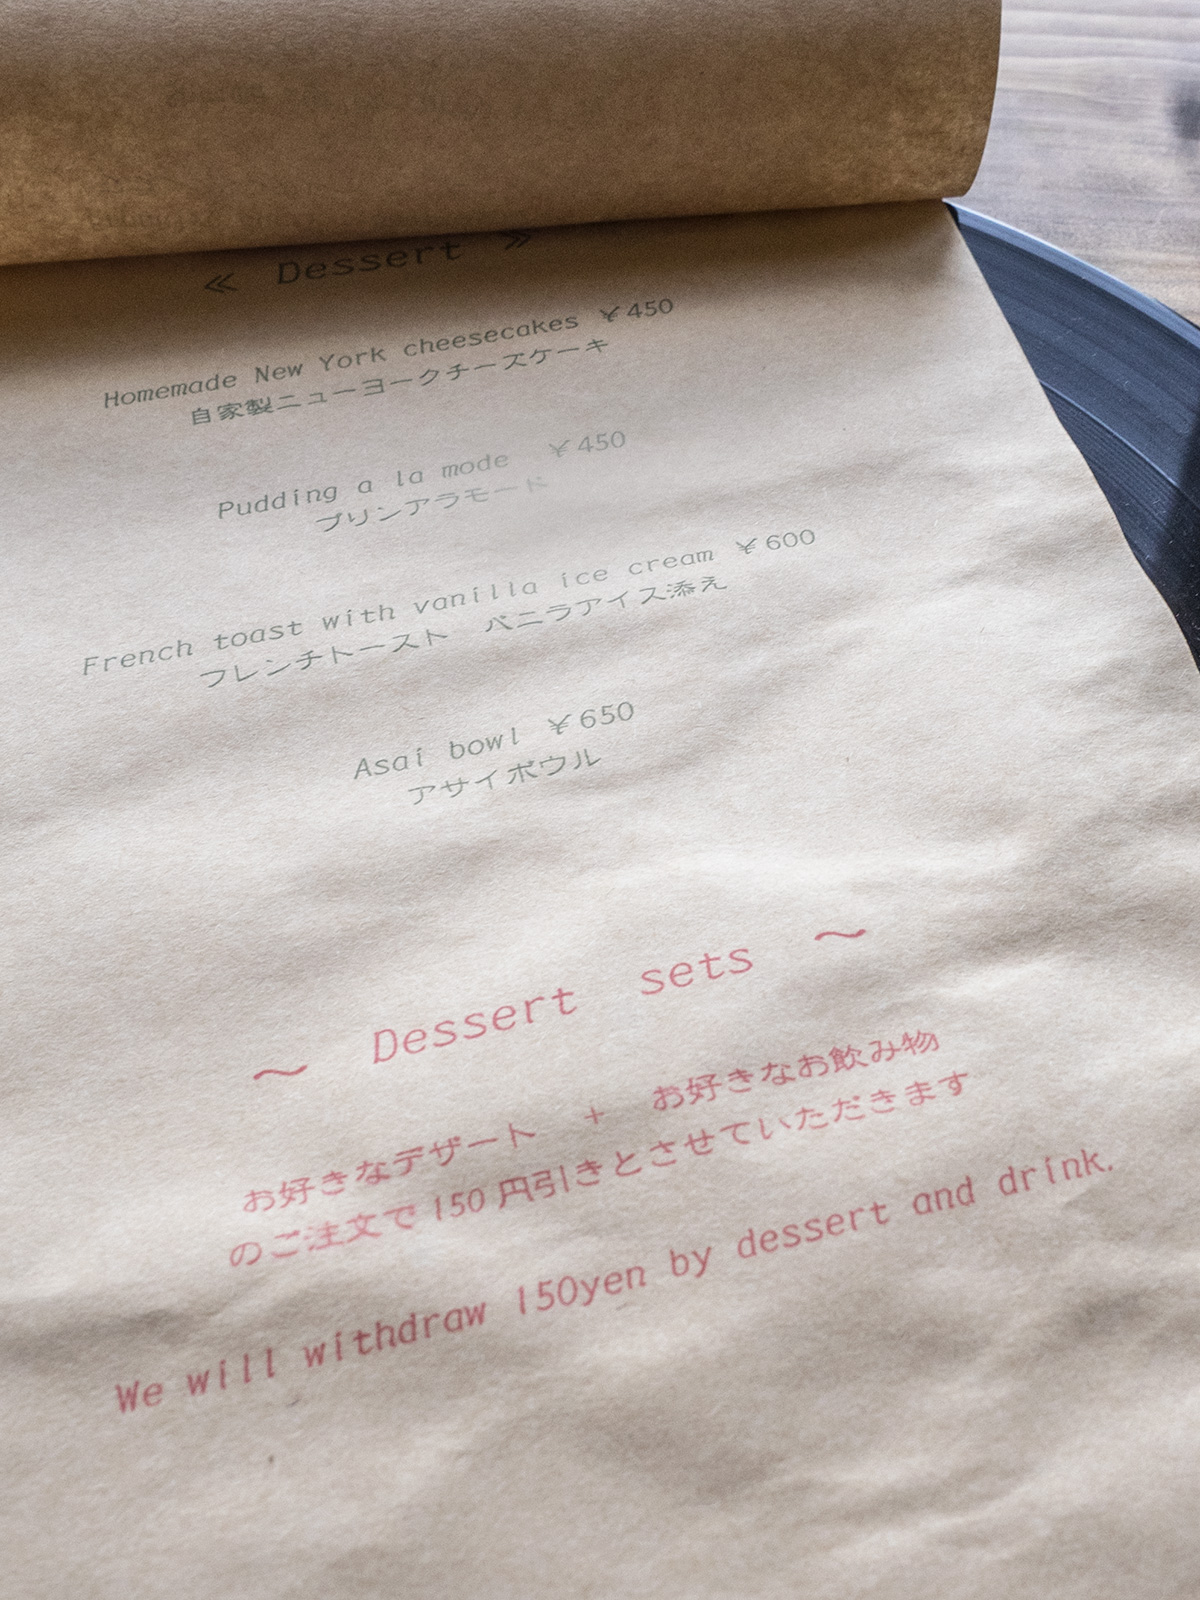 ≪ Dessert ≫
Homemade New York cheesecakes ¥450
自家製ニューヨークチーズケーキ
Pudding a la mode ¥450
プリンアラモード
French toast with vanilla ice cream ¥600
フレンチトースト バニラアイス添え
Asai bowl ¥650
アサイボウル
～ Dessert sets ～
お好きなデザート + お好きなお飲み物
のご注文で150円引きとさせていただきます
We will withdraw 150yen by dessert and drink.